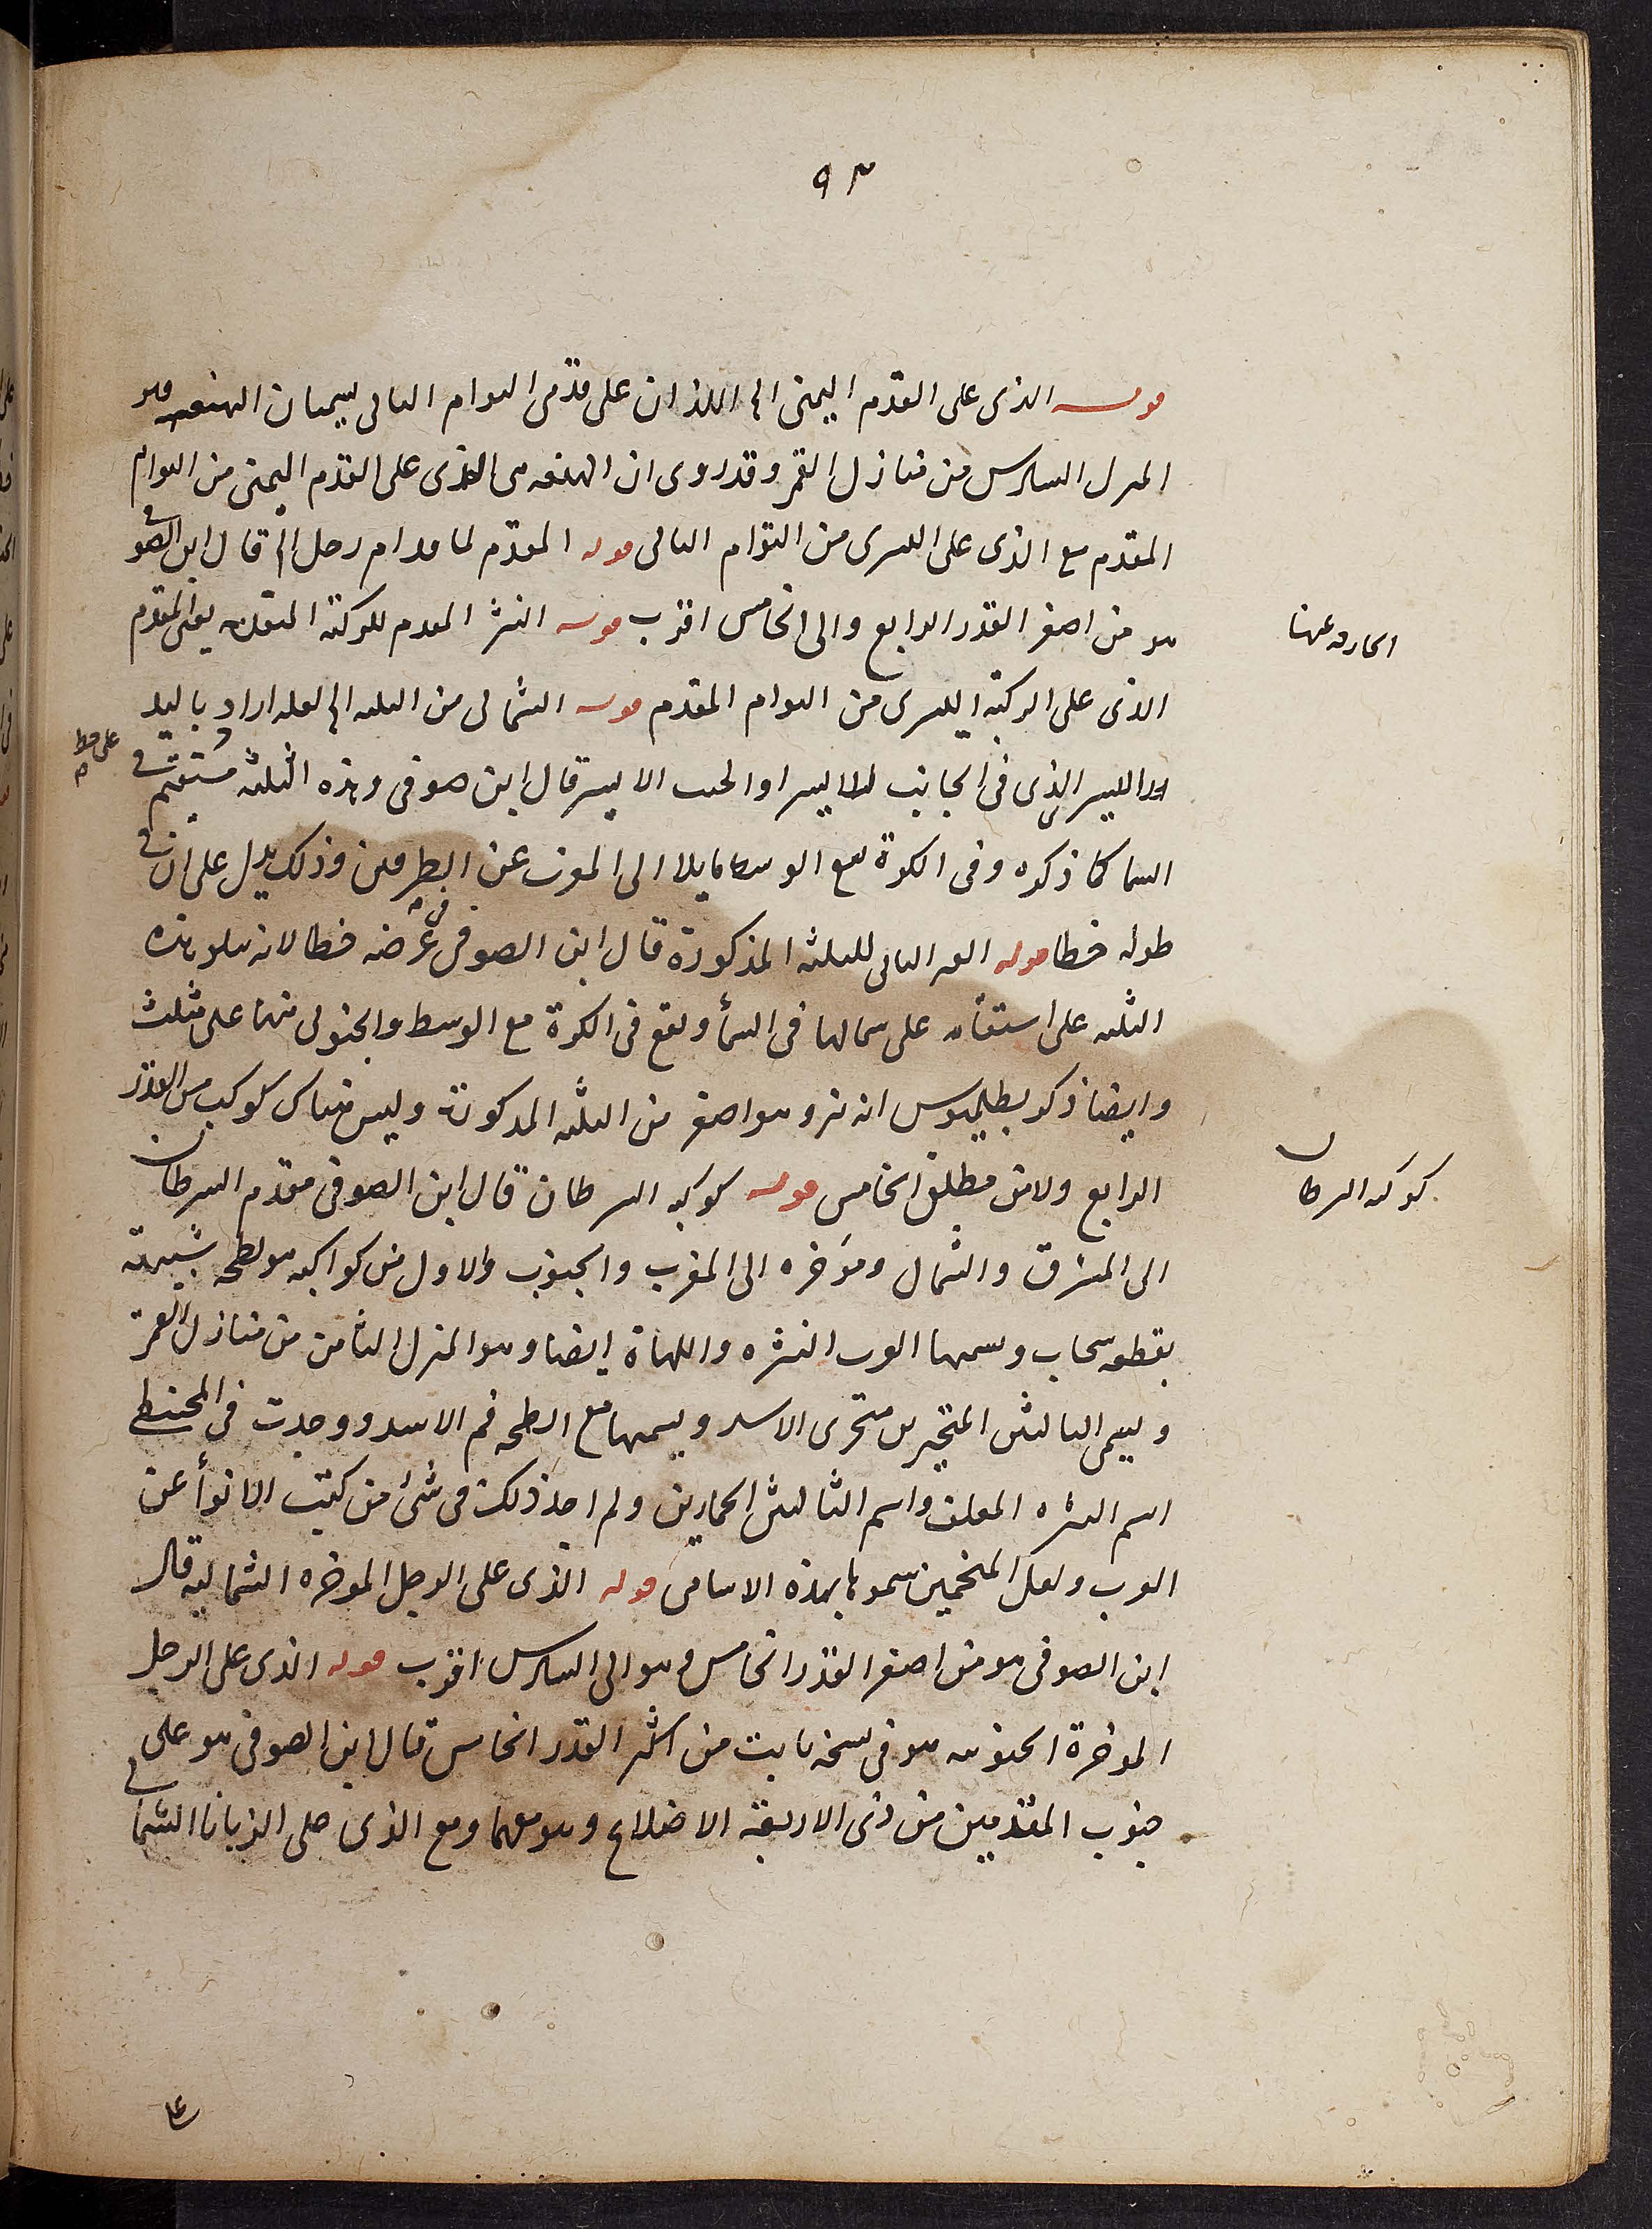 ٩٣
قوله الذى على القدم اليمنى الى اللذان على قدمى التوام التالى يسميان الهنعه وهو
المنزل السادس من منازل القمر وقد روى ان الهنعه هى الذى على القدم اليمنى من التوام
المقدم مع الذى على اليسرى من التوام التالى قوله المقدم لما قدام رجل الى قال ابن الصوفى
هو من اصغر القدر الرابع والى الخامس اقرب قوله النير المقدم للركبة المتقدمه يعنى المقدم
الخارجه عنها
الذى على الركبة اليسرى من التوام المقدم قوله الشمالى من الثلثه الى لعله اراد باليد
اليسر الذى فى الجانب الايسر او الجنب الايسر قال ابن صوفى وهذه الثلثه مستقيم فى
على خط
السما كما ذكره وفى الكرة يقع الوسط مايلا الى الجنوب عن الطرفين وذلك يدل على ان فى
طوله خطا قوله التالى للثلثه المذكورة قال ابن الصوفى فى عرضه خطا لانه يتلو هذه
الثلثه على استقامه على شمالها فى السمأ ويقع فى الكرة مع الوسط والجنوبى منها على مثلث
وايضا ذكر بطليموس انه نير وهو اصغر من الثلثه المذكورة وليس هناك كوكب من القدر
الرابع ولا من مطلق الخامس قوله كوكبه السرطان قال ابن الصوفى مقدم السرطان
كوكبه السرطان
الى المشرق والشمال ومؤخره الى المغرب والجنوب والاول من كواكبه هو لطخه شبيهة
بقطعه سحاب ويسميها العرب النثره واللهاة ايضا وهو المنزل الثامن من منازل القمر
ويسمى التاليين المنخرين منخرى الاسد ويسميها مع اللطخه فم الاسد ووجدت فى المجسطى
اسم النثره المعلف واسم التاليين الحمارين ولم اجد ذلك فى شئ من كتب الانوأ عن
العرب ولعل المنجمين سموها بهذه الاسامى قوله الذى على الرجل الموخره الشماليه قال
ابن الصوفى هو من اصغر القدر الخامس وهو الى السادس اقرب قوله الذى على الرجل
الموخرة الجنوبيه هو فى نسخه ثابت من اكثر القدر الخامس قال ابن الصوفى هو على
جنوب المقدمين من ذى الاربعة الاضلاع وهو معهما ومع الذى على الزبانا الشمالى